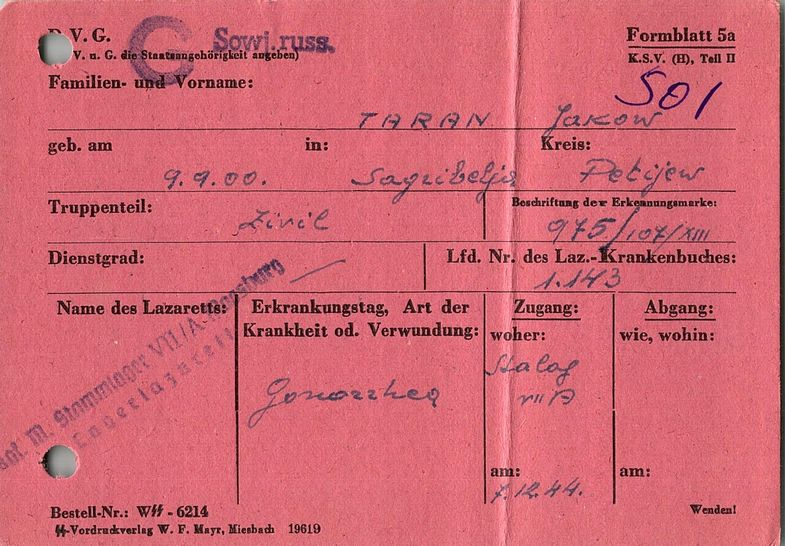 V. G.
C Sowj.russ.
Formblatt 5a
V. u. G. die Staatsangehörigkeit angeben)
K.S.V. (H), Teil II
Familien- und Vorname:
501
TARAN Jakow
geb. am in: Kreis:
9.9.00. Sagribelje Petijew
Truppenteil: Beschriftung der Erkennungsmarke:
Zivil 975/107/XIII
Dienstgrad: Lfd. Nr. des Laz.-Krankenbuches:
— 1.143
Name des Lazaretts: Erkrankungstag, Art der Zugang: Abgang:
Krankheit od. Verwundung: woher: wie, wohin:
M. Stammlager VII/A-Moosburg
Lagerlazarett
Gonorrhea
Stalag
VII A
am: am:
7.12.44.
Bestell-Nr.: WSS - 6214
Wenden!
SS-Vordruckverlag W. F. Mayr, Miesbach 19619